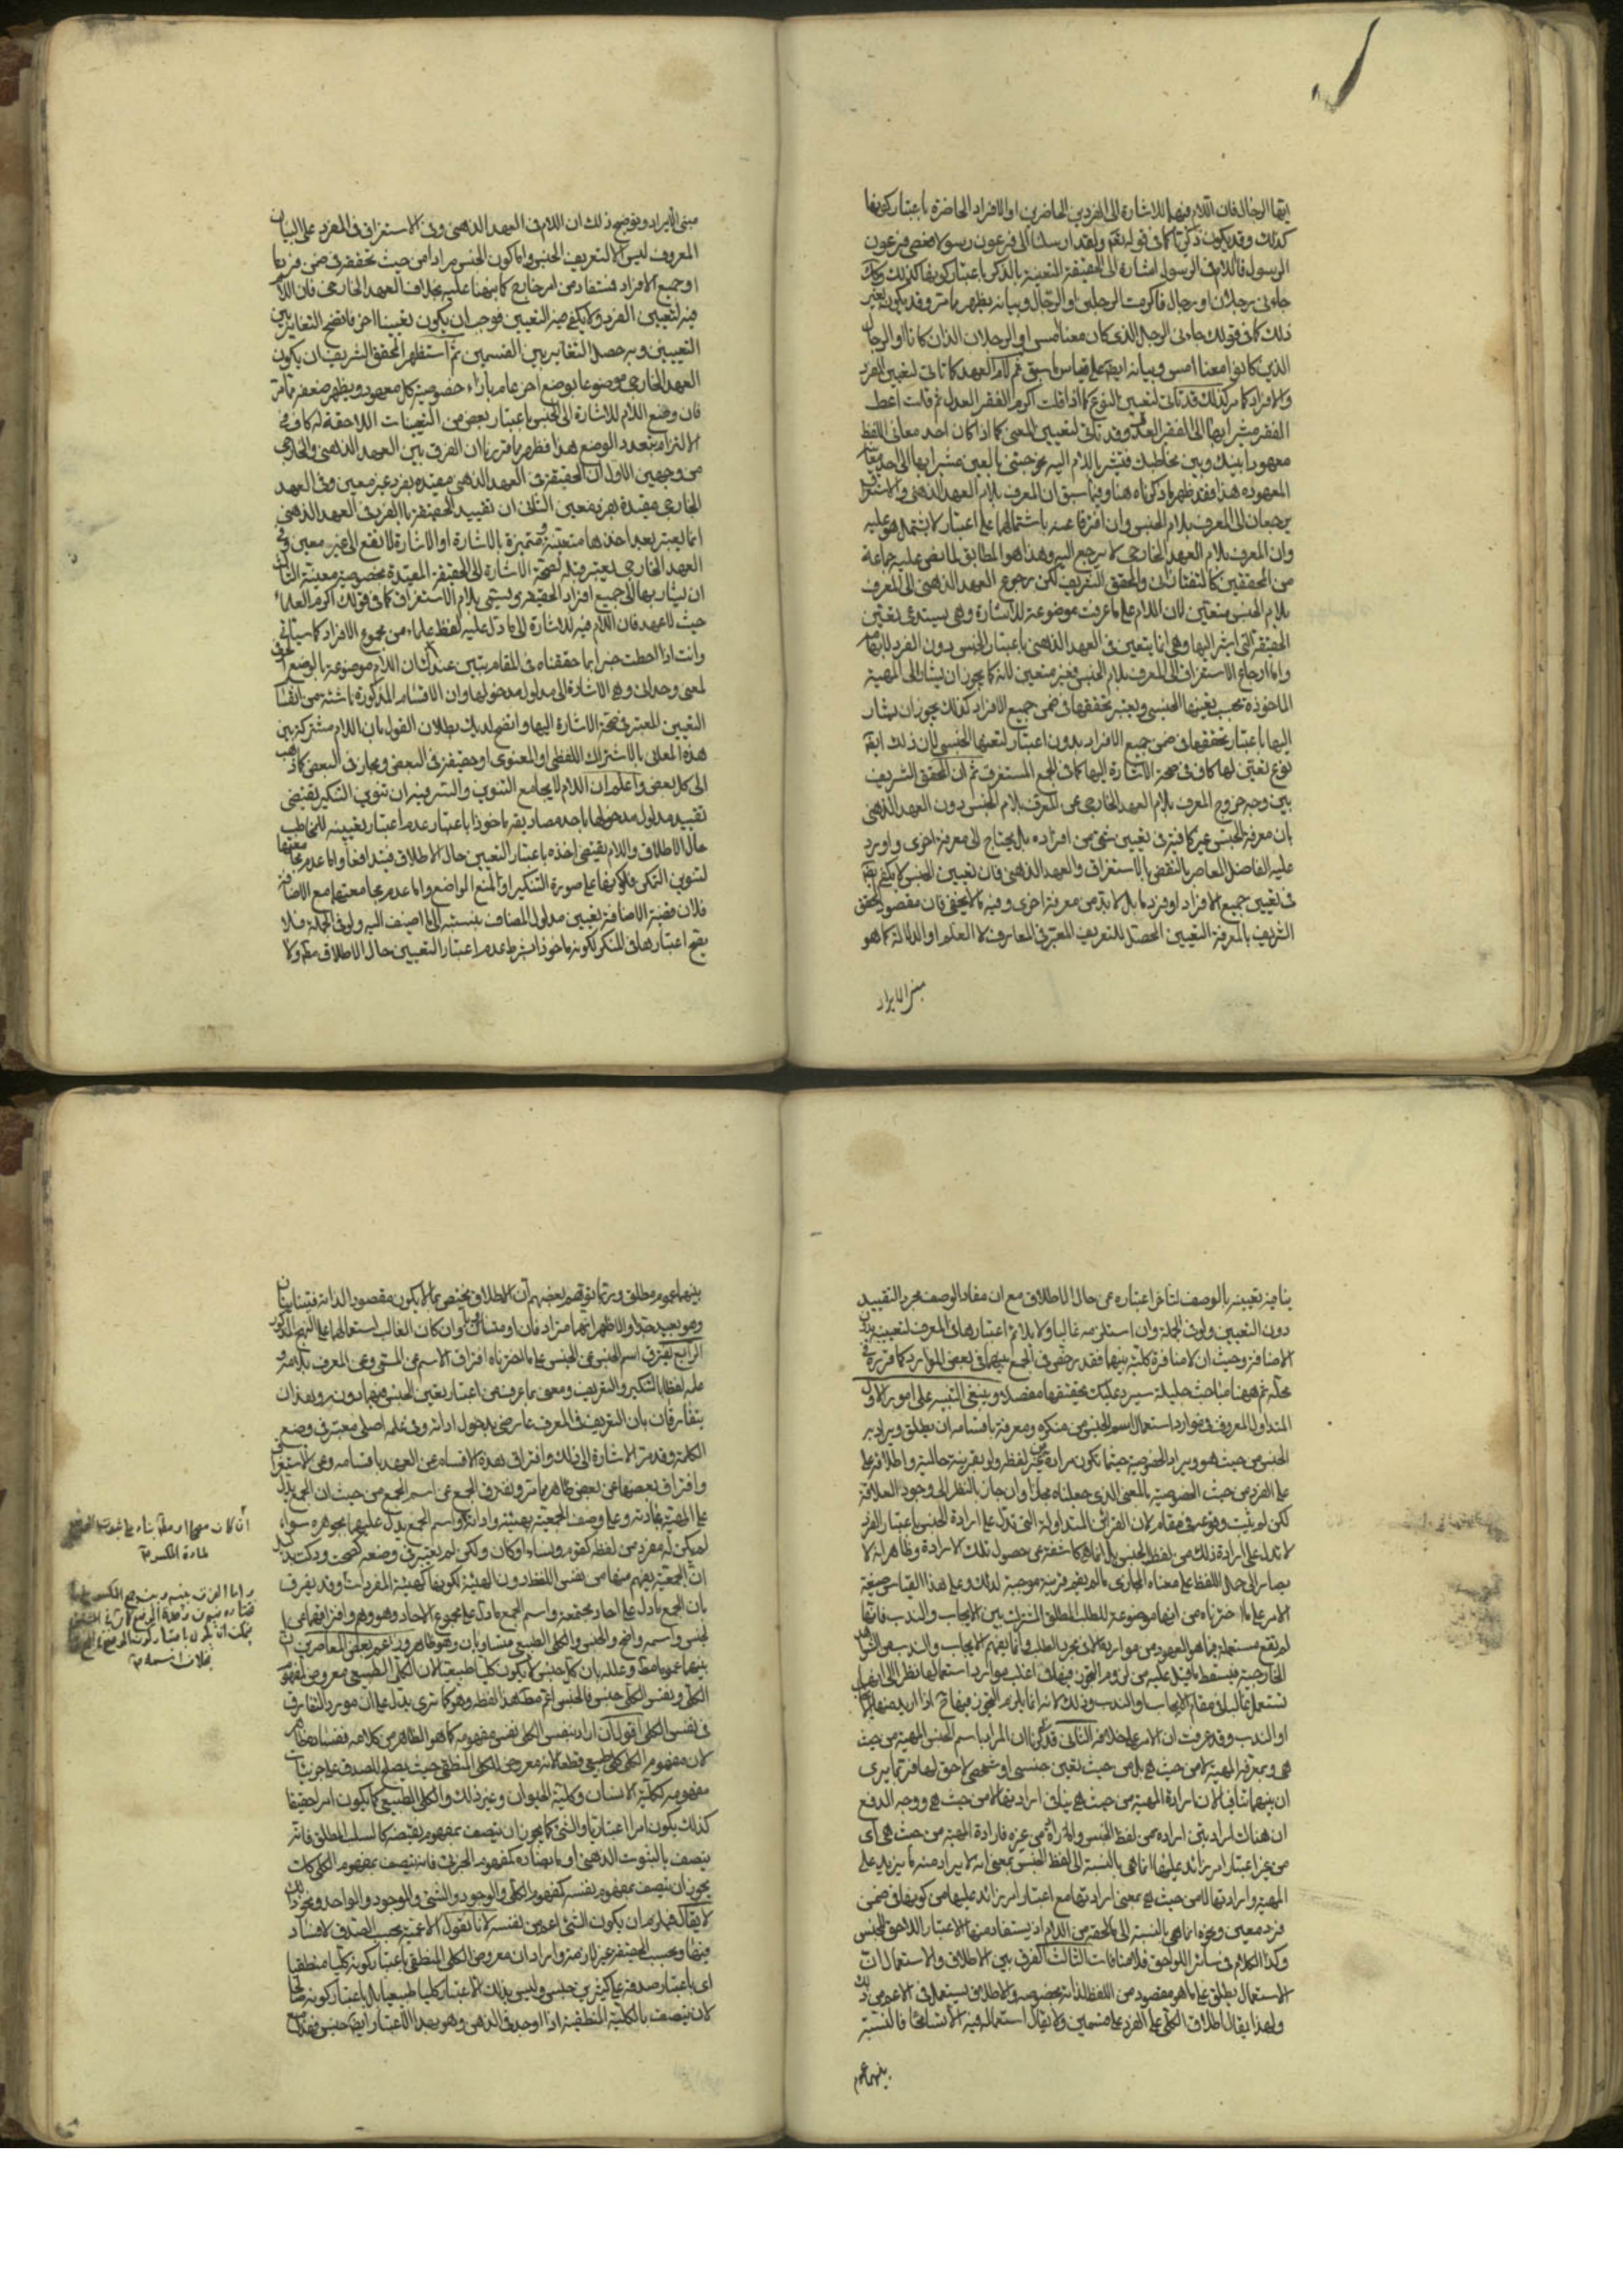 ايها الرجال فان اللام فيهما للاشارة الى الفردين الحاضرين او الافراد الحاضرة باعتبار كونها
كذلك وقد يكون ذكريا كما في قوله تقه ولقد ارسلنا الى فرعون رسولا فعصى فرعون
الرسول فاللام في الرسول اشارة الى الحقيقة المتعينة بالذكر باعتبار كونها كذلك وكك
جاءني رجلان او رجال فاكرمت الرجلين او الرجال وبيانه يظهر مما مر وقد يكون بغير
ذلك كما في قولك جاءني الرجل الذي كان معنا امس او الرجلان اللذان كانا او الرجال
الذين كانوا معنا امس وبيانه ايضا على قياس ما سبق ثم لام العهد كما تاتي لتعيين الفرد
والافراد كما مر كذلك قد تاتي لتعيين النوع كما اذا قلت اكرم الفقير العدل ثم قلت اعط
الفقير مشيرا بها الى الفقير العدل وقد تاتي لتعيين المعنى كما اذا كان احد معاني اللفظ
معهودا بينك وبين مخاطبك فتشير باللام اليه نحو جئني بالعين مشيرا بها الى احد معانيها
المعهودة هذا فقد ظهر مما ذكرناه هنا وفيما سبق ان المعرف بلام العهد الذهني والاستغراق
يرجعان الى المعرف بلام الجنس وان افترقا عنه باشتمالهما على اعتبار لا يشتمل هو عليه
وان المعرف بلام العهد الخارجي لا يرجع اليه وهذا هو المطابق لما نص عليه جماعة
من المحققين كالتفتازاني والمحقق الشريف لكن رجوع العهد الذهني الى المعرف
بلام الجنس متعين لان اللام على ما عرفت موضوعة للاشارة وهي يستدعي تعيين
الحقيقة التي اشير اليها وهي انما يتعين في العهد الذهني باعتبار الجنس دون الفرد لابهامه
واما ارجاع الاستغراق الى المعرف بلام الجنس فغير متعين لانه كما يجوز ان يشار الى المهية
الماخوذة بحسب تعينها الجنسي ويعتبر تحققها في ضمن جميع الافراد كذلك يجوز ان يشار
اليها باعتبار تحققها في ضمن جميع الافراد بدون اعتبار لتعينها الجنسي لان ذلك ايضا
نوع تعين لها كاف في صحة الاشارة اليها كما في الجمع المستغرق ثم ان المحقق الشريف
بين وجه خروج المعرف بلام العهد الخارجي عن المعرف بلام الجنس دون العهد الذهني
بان معرفة الجنس غير كافية في تعيين شئ من افراده بل يحتاج الى معرفة اخرى واورد
عليه الفاضل المعاصر بالنقض بالاستغراق والعهد الذهني فان تعيين الجنس لا يكفي ايضا
في تعيين جميع الافراد او فرد ما بل لا بد من معرفة اخرى وفيه ما لا يخفى فان مقصود المحقق
الشريف بالمعرفة التعيين المحصل للتعريف المعتبر في المعارف لا العلم او الدلالة كما هو
مبنى الايراد
مبنى الايراد وتوضيح ذلك ان اللام في العهد الذهني وفي الاستغراق في المفرد على البيان
المعروف ليس الا لتعريف الجنس واما كون الجنس مرادا من حيث تحققه في ضمن فرد ما
او جميع الافراد فمستفاد من امر خارج كما نبهنا عليه بخلاف العهد الخارجي فان اللام
فيه لتعيين الفرد ولا يكفي فيه التعيين فوجب ان يكون تعيينا اخر فاتضح التغاير بين
التعيينين وبه حصل التغاير بين القسمين ثم استظهر المحقق الشريف ان يكون
العهد الخارجي موضوعا بوضع اخر عام بازاء خصوصية كل معهود ويظهر ضعفه مما مر
فان وضع اللام للاشارة الى الجنس باعتبار بعض من التعينات اللاحقة له كاف في
الالتزام بتعدد الوضع هذا فظهر مما قررنا ان الفرق بين العهد الذهني والخارجي
من وجهين الاول ان الحقيقة في العهد الذهني مقيدة بفرد غير معين وفي العهد
الخارجي مقيدة بفرد معين الثاني ان تقييد الحقيقة بالفرد في العهد الذهني
انما يعتبر بعد اخذها متعينة ومتميزة بالاشارة اذ الاشارة لا تقع الى غير معين وفي
العهد الخارجي يعتبر قبله لصحة الاشارة الى الحقيقة المقيدة بخصوصية معينة الثالث
ان يشار بها الى جميع افراد الحقيقة ويسمى بلام الاستغراق كما في قولك اكرم العلماء
حيث لا عهد فان اللام فيه للاشارة الى ما دل عليه لفظ علماء من مجموع الافراد كما سياتي
وانت اذا احطت خبرا بما حققناه في المقام يتبين عندك ان اللام موضوعة بالوضع الحرفي
لمعنى وحداني وهو الاشارة الى مدلول مدخولها وان الاقسام المذكورة ناشئة من اقسام
التعيين المعتبر في صحة الاشارة اليها واتضح لديك بطلان القول بان اللام مشتركة بين
هذه المعاني بالاشتراك اللفظي او المعنوي او حقيقة في البعض ومجاز في البعض كما ذهب
الى كل بعض واعلم ان اللام لا يجامع التنوين والسر فيه ان تنوين التنكير يقتضي
تقييد مدلول مدخولها باحد مصاديقه ماخوذا باعتبار عدم اعتبار تعيينه للمخاطب
حال الاطلاق واللام يقتضي اخذه باعتبار التعيين حال الاطلاق فيتدافعا واما عدم مجامعتها
لتنوين التمكن فلكونها على صورة التنكير او لمنع الواضع واما عدم مجامعتها مع الاضافة
فلان قضية الاضافة تعيين مدلول المضاف بنسبته الى ما اضيف اليه ولو في الجملة فلا
يصح اعتبارها في المنكر لكونه ماخوذا بشرط عدم اعتبار التعيين حال الاطلاق مطلقا ولا
ينافيه تعيينه بالوصف لتاخر اعتباره عن حال الاطلاق مع ان مفاد الوصف مجرد التقييد
دون التعيين ولو في الجملة وان استلزمه غالبا ولا يلائم اعتبارها في المعرف لتعيينه بدون
الاضافة وحيث ان لا منافرة كلية بينهما فقد رخص في الجمع بينهما في بعض الموارد كما قرر في
محله ثم ههنا مباحث جليلة سيرد عليك تحقيقها مفصلا وينبغي التنبيه على امور الاول
المتداول المعروف في موارد استعمال اسم الجنس من منكره ومعرفه باقسامه ان يطلق ويراد به
الجنس من حيث هو ويراد الخصوصية حيثما تكون مرادة من غير لفظه ولو بقرينة حالية واطلاقه على
على الفرد من حيث الخصوصية بالمعنى الذي جعلناه مجازا وان جاز بالنظر الى وجود العلاقة
لكن لم يثبت وقوعه في مقام لان القرائن المتداولة التي تدل على ارادة الجنس باعتبار الفرد
لا تدل على ارادة ذلك من لفظ الجنس بل انما هي كاشفة عن حصول تلك الارادة وظاهر انه لا
يصار الى حمل اللفظ على معناه المجازي ما لم يقم قرينة موجبة لذلك وعلى هذا القياس صيغة
الامر على ما اخترناه من انها موضوعة للطلب المطلق المشترك بين الايجاب والندب فانها
لم تقع مستعملة فيما هو المعهود من مواردها الا في مجرد الطلب وانما يفهم الايجاب والندب من الشواهد
الخارجية فيسقط ما قيل عليه من لزوم التجوز فيها في اغلب موارد استعمالها نظرا الى انها
تستعمل غالبا في مقام الايجاب والندب وذلك لانه انما يلزم التجوز فيها حينئذ اذا اريد منها الايجاب
او الندب وقد عرفت ان الامر على خلافه الثاني قد ذكرنا ان المراد باسم الجنس المهية من حيث
هي وبمعرفه المهية لا من حيث هي بل من حيث تعين جنسي او شخصي لاحق لها فربما يرى
ان بينهما تناف لان ارادة المهية من حيث هي ينافي ارادتها لا من حيث هي ووجه الدفع
ان هناك ارادتين ارادة من لفظ الجنس والاخرى من غيره فارادة المهية من حيث هي اي
من غير اعتبار امر زائد عليها انما هي بالنسبة الى لفظ الجنس بمعنى انه لا يراد منه ما يزيد على
المهية وارادتها لا من حيث هي بمعنى ارادتها مع اعتبار امر زائد عليها من كونها في ضمن
فرد معين ونحوه انما هي بالنسبة الى ما لحقه من اللام اذ يستفاد منها الاعتبار اللاحق للجنس
وكذا الكلام في سائر اللواحق فلا منافات الثالث الفرق بين الاطلاق والاستعمال ان
الاستعمال يطلق على ما هو مقصود من اللفظ لذاته بخصوصه والاطلاق يستعمل في الاعم من ذلك
ولهذا يقال اطلاق الكلي على الفرد على قسمين ولا يقال استعماله فيه الا تسامحا فالنسبة
بينهما عموم
بينهما عموم مطلق وربما توهم بعضهم ان الاطلاق يختص بما لا يكون مقصودا لذاته فيتباينان
وهو بعيد جدا والاظهر انهما مترادفان او متساويان وان كان الغالب استعمالهما على النهج المذكور
الرابع يفترق اسم الجنس عن الجنس على ما اخترناه افتراق الاسم عن المسمى وعن المعرف بلامه و
علمه لفظا بالتنكير والتعريف ومعنى بما عرفت من اعتبار تعين الجنس فيهما دونه وبعد ان
يتفارقان بان التعريف في المعرف عارضي بدخول اداته وفي علمه اصلي معتبر في وضع
الكلمة وقد مرت الاشارة الى ذلك وافتراق هذه الاقسام عن العهد باقسامه وعن الاستغراق
وافتراق بعضها عن بعض ظاهر مما مر ويفترق الجمع عن اسم الجمع من حيث ان الجمع يدل
على المهية بمادته وعلى وصف الجمعية بهيئته واداته واسم الجمع يدل عليهما بجوهره سواء
لم يكن له مفرد من لفظه كقوم ونساء او كان ولكن لم يعتبر في وضعه كصحب وركب بدليل
ان الجمعية يفهم منها من نفس اللفظ دون الهيئة لكونها كهيئة المفردات وقد يفرق
بان الجمع ما دل على احاد مجتمعة واسم الجمع ما دل على مجموع الاحاد وهو وهم وافتراقهما عن
الجنس واسمه واضح والجنس والكلي الطبيعي متساويان وهو ظاهر وزعم بعض المعاصرين ان
بينهما عموما مطلقا وعلله بان كل جنس لا يكون كليا طبيعيا لان الكلي الطبيعي معروض لمفهوم
الكلي ونفس الكلي جنس فالجنس اعم مطلقا هذا لفظه وهو كما ترى يدل على ان مورد التفارق
في نفس الكلي اقول ان اراد بنفس الكلي نفس مفهومه كما هو الظاهر من كلامه ففساده ظاهر
لان مفهوم الكلي كلي طبيعي قطعا لانه معروض للكلي المنطقي حيث يصلح للصدق على جزئيات
مفهومه ككلية الانسان وكلية الحيوان وغير ذلك والكلي الطبيعي كما يكون امرا حقيقيا
كذلك يكون امرا اعتباريا والشئ كما يجوز ان يتصف بمفهوم نقيضه كالسلب المطلق فانه
يتصف بالثبوت الذهني او ما يضاده كمفهوم الجزئي فانه يتصف بمفهوم الكلي كذلك
يجوز ان يتصف بمفهوم نفسه كمفهوم الكلي والوجود والشئ والموجود والواحد ونحو ذلك
لا يقال فيلزم ان يكون الشئ اعم من نفسه لانا نقول الاعمية بحسب الصدق لا فساد
فيها وبحسب الحقيقة غير لازمة وان اراد ان معروض الكلي المنطقي باعتبار كونه كليا منطقيا
اي باعتبار صدقه على كثيرين جنس وليس بذلك الاعتبار كليا طبيعيا بل باعتبار كونه صالحا
لان يتصف بالكلية المنطقية اذا وجد في الذهن وهو بهذا الاعتبار ايضا جنس فيقدح
لمادة المكسر منه
بخلاف اسمه منه